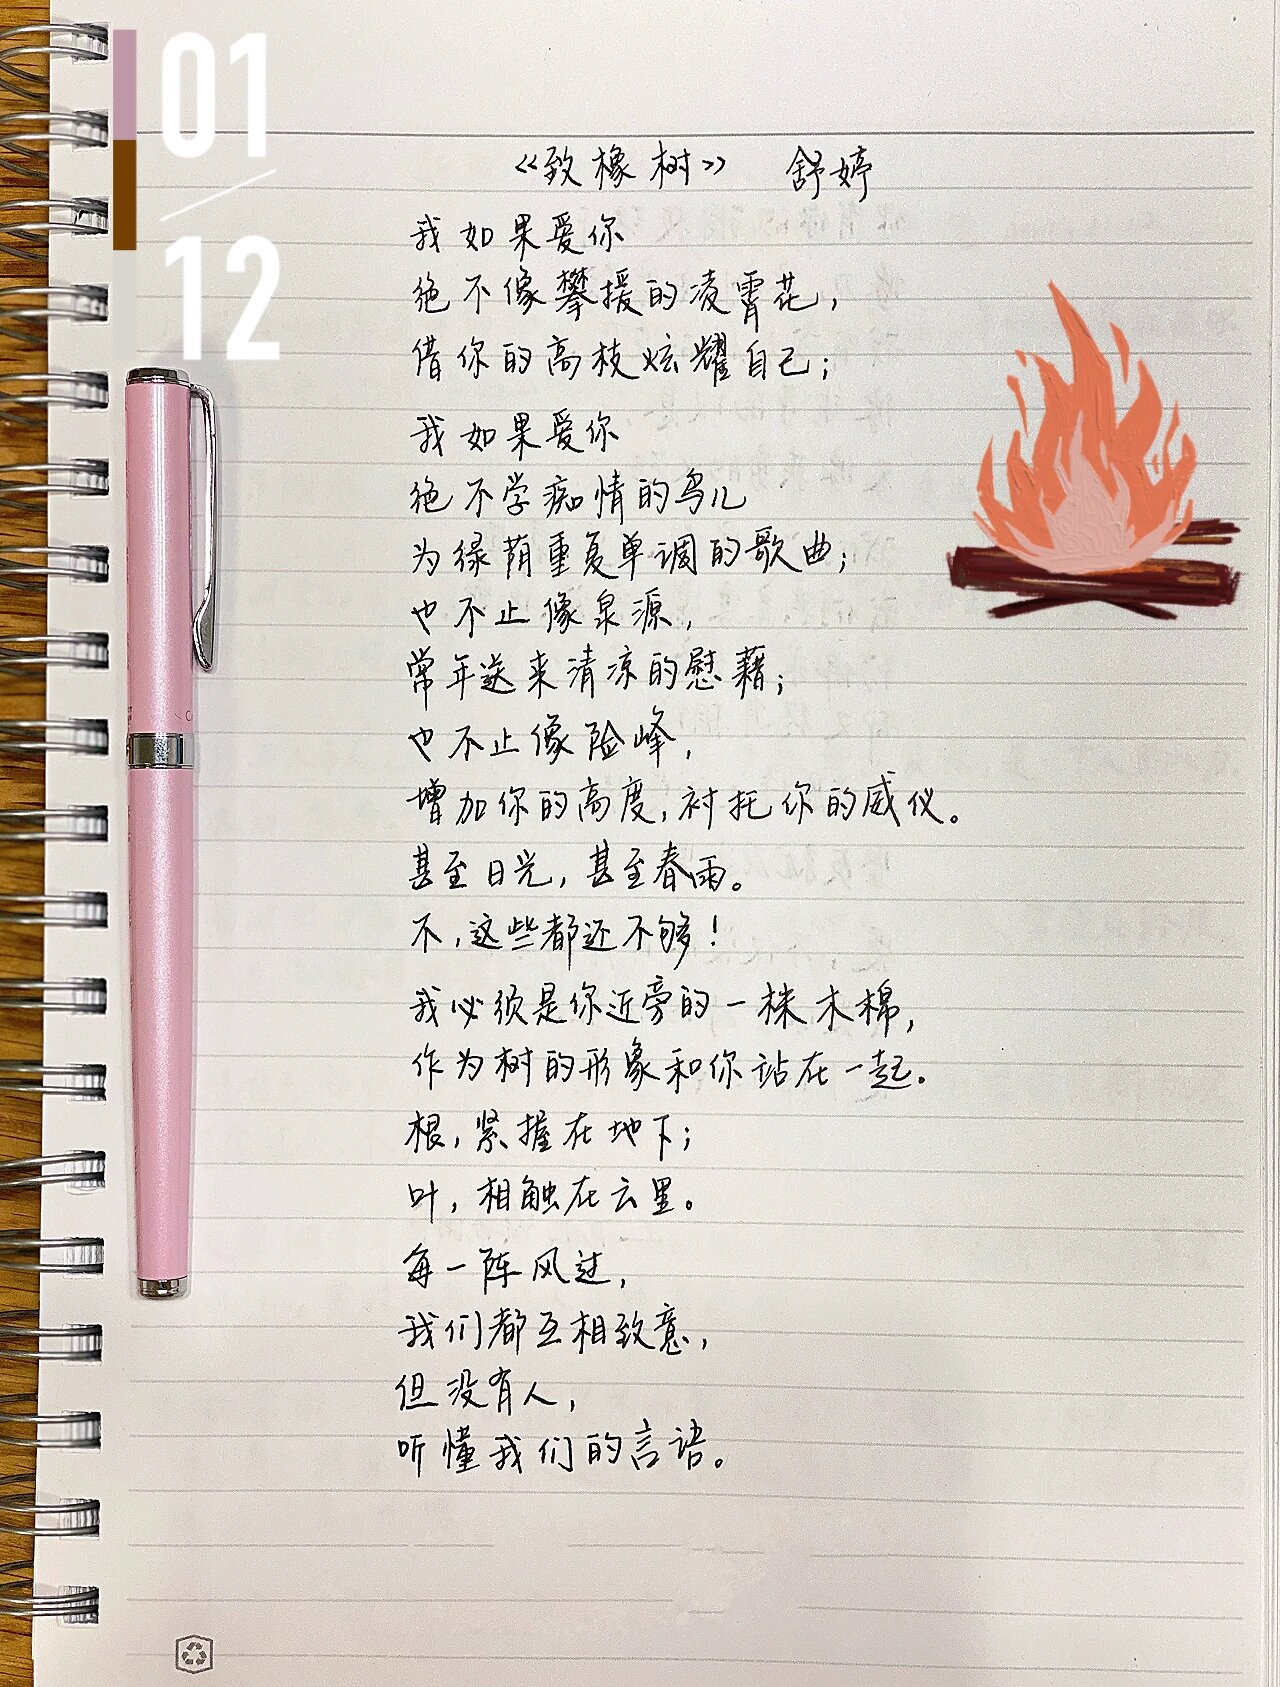 01
12
《致橡树》 舒婷
我如果爱你
绝不像攀援的凌霄花，
借你的高枝炫耀自己；
我如果爱你
绝不学痴情的鸟儿
为绿荫重复单调的歌曲；
也不止像泉源，
常年送来清凉的慰藉；
也不止像险峰，
增加你的高度，衬托你的威仪。
甚至日光，甚至春雨。
不，这些都还不够！
我必须是你近旁的一株木棉，
作为树的形象和你站在一起。
根，紧握在地下；
叶，相触在云里。
每一阵风过，
我们都互相致意，
但没有人，
听懂我们的言语。